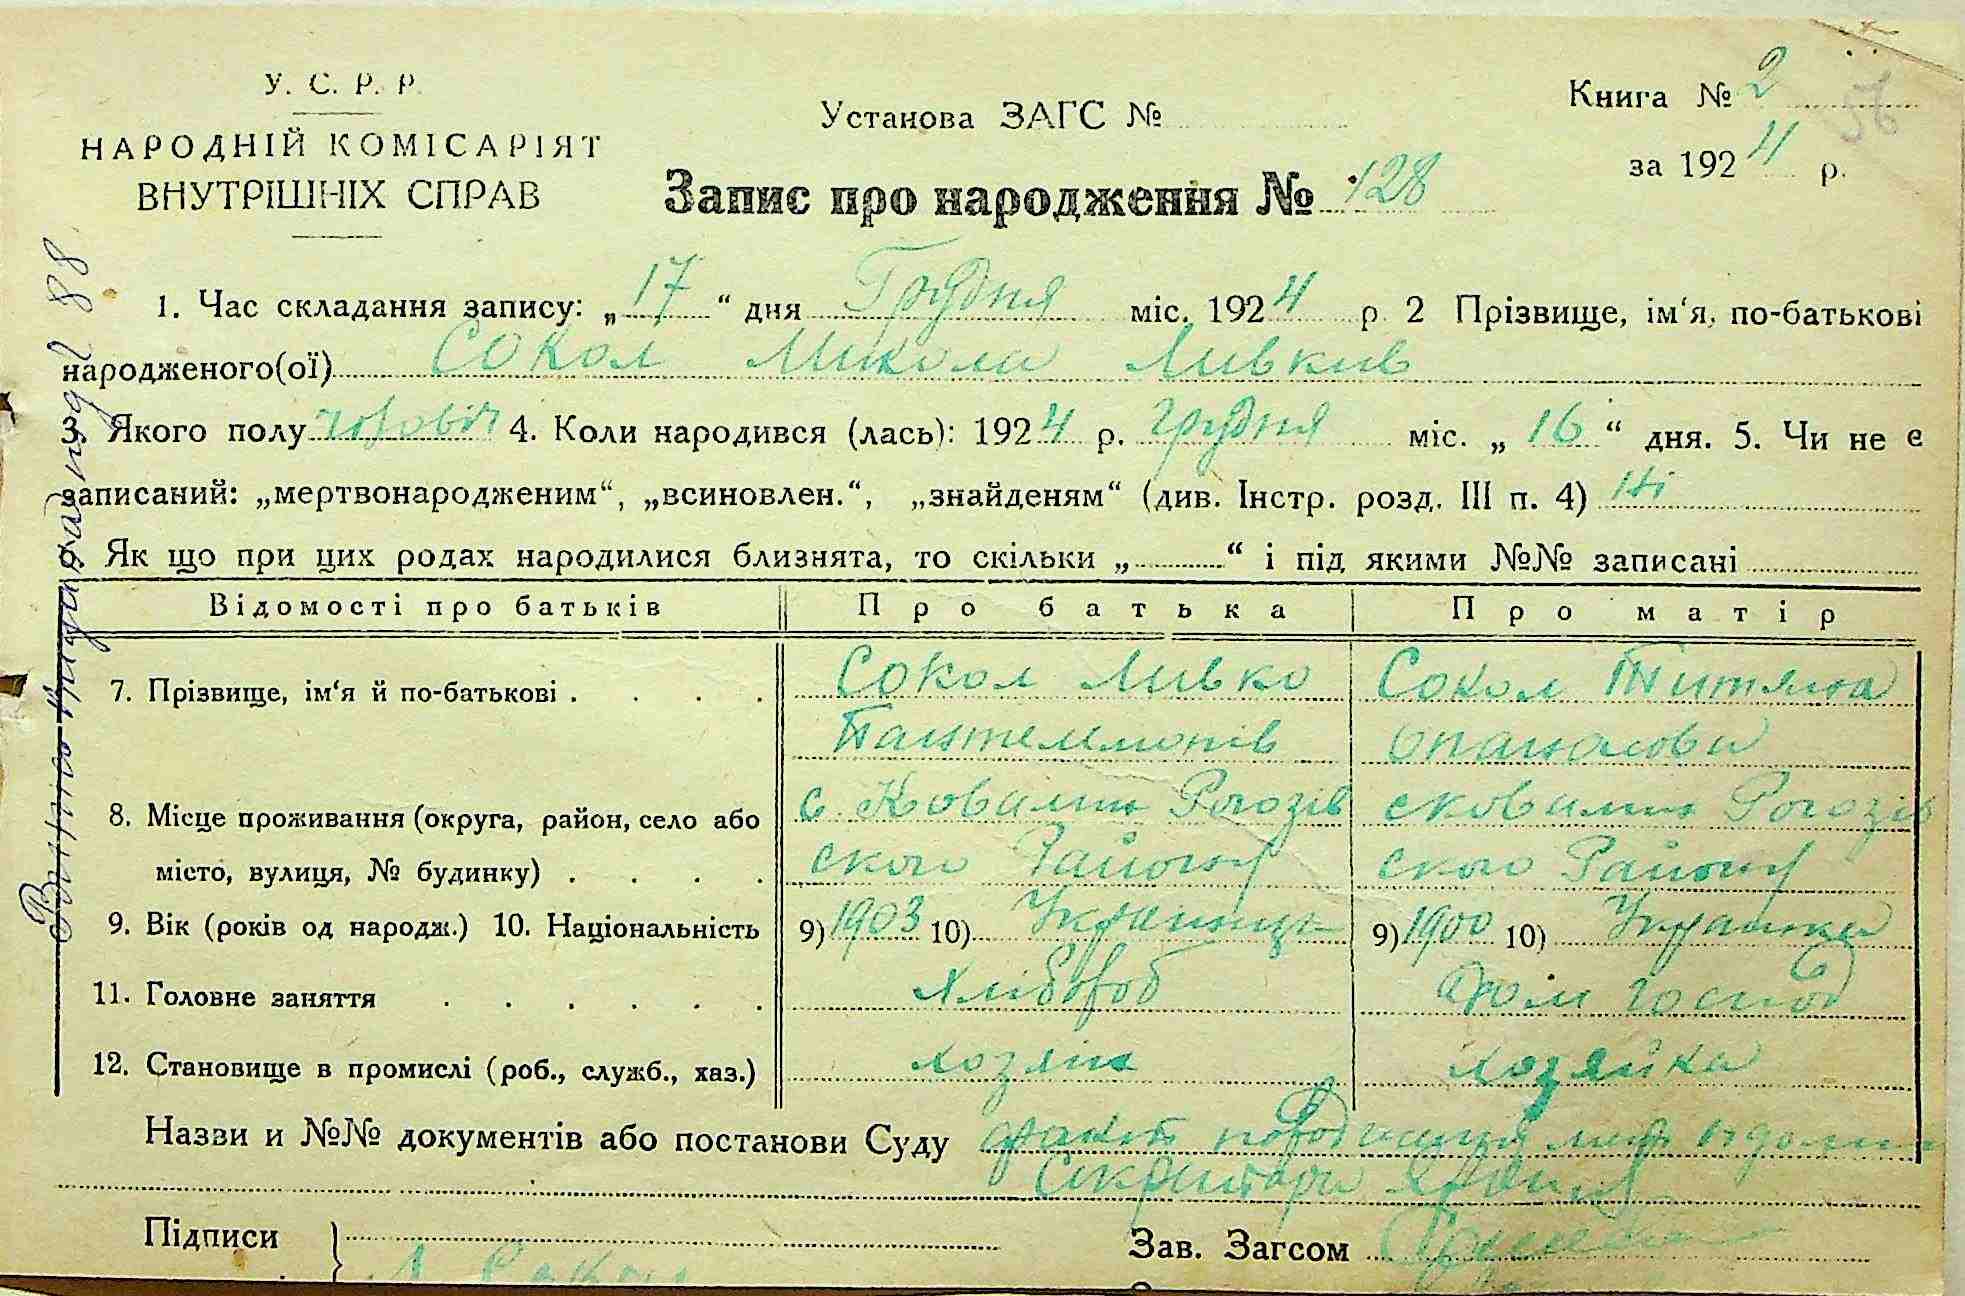 У. С. Р. Р.
НАРОДНІЙ КОМІСАРІЯТ
ВНУТРІШНІХ СПРАВ
Установа ЗАГС №
Книга № 2
36
за 1924 р.
Запис про народження № 128
1. Час складання запису: „17“ дня Грудня міс. 1924 р 2 Прізвище, ім‘я, по-батькові
народженого(ої) Сокол Микола Ливкив
3. Якого полу чоловіч 4. Коли народився (лась): 1924 р. грудня міс. „16“ дня. 5. Чи не є
записаний: „мертвонародженим“, „всиновлен.“, „знайденям“ (див. Інстр. розд. III п. 4) Ні
Як що при цих родах народилися близнята, то скільки „ “ і під якими №№ записані
Відомості про батьків Про батька Про матір
7. Прізвище, ім‘я й по-батькові . . . . Сокол Ливко Сокол Титяна
Пантелимонів Опанасови
8. Місце проживання (округа, район, село або с. Ковалин Рогозів с Ковалин Рогозів
місто, вулиця, № будинку) . . . . ского Району ского Району
9. Вік (років од народж.) 10. Національність 9) 1903 10) Украинць 9) 1900 10) Украинка
11. Головне заняття . . . . . . Хлибороб Дом господ
12. Становище в промислі (роб., служб., хаз.) хозяин хозяйка
Назви и №№ документів або постанови Суду
Секритари
Підписи
Зав. Загсом
Сокол
88